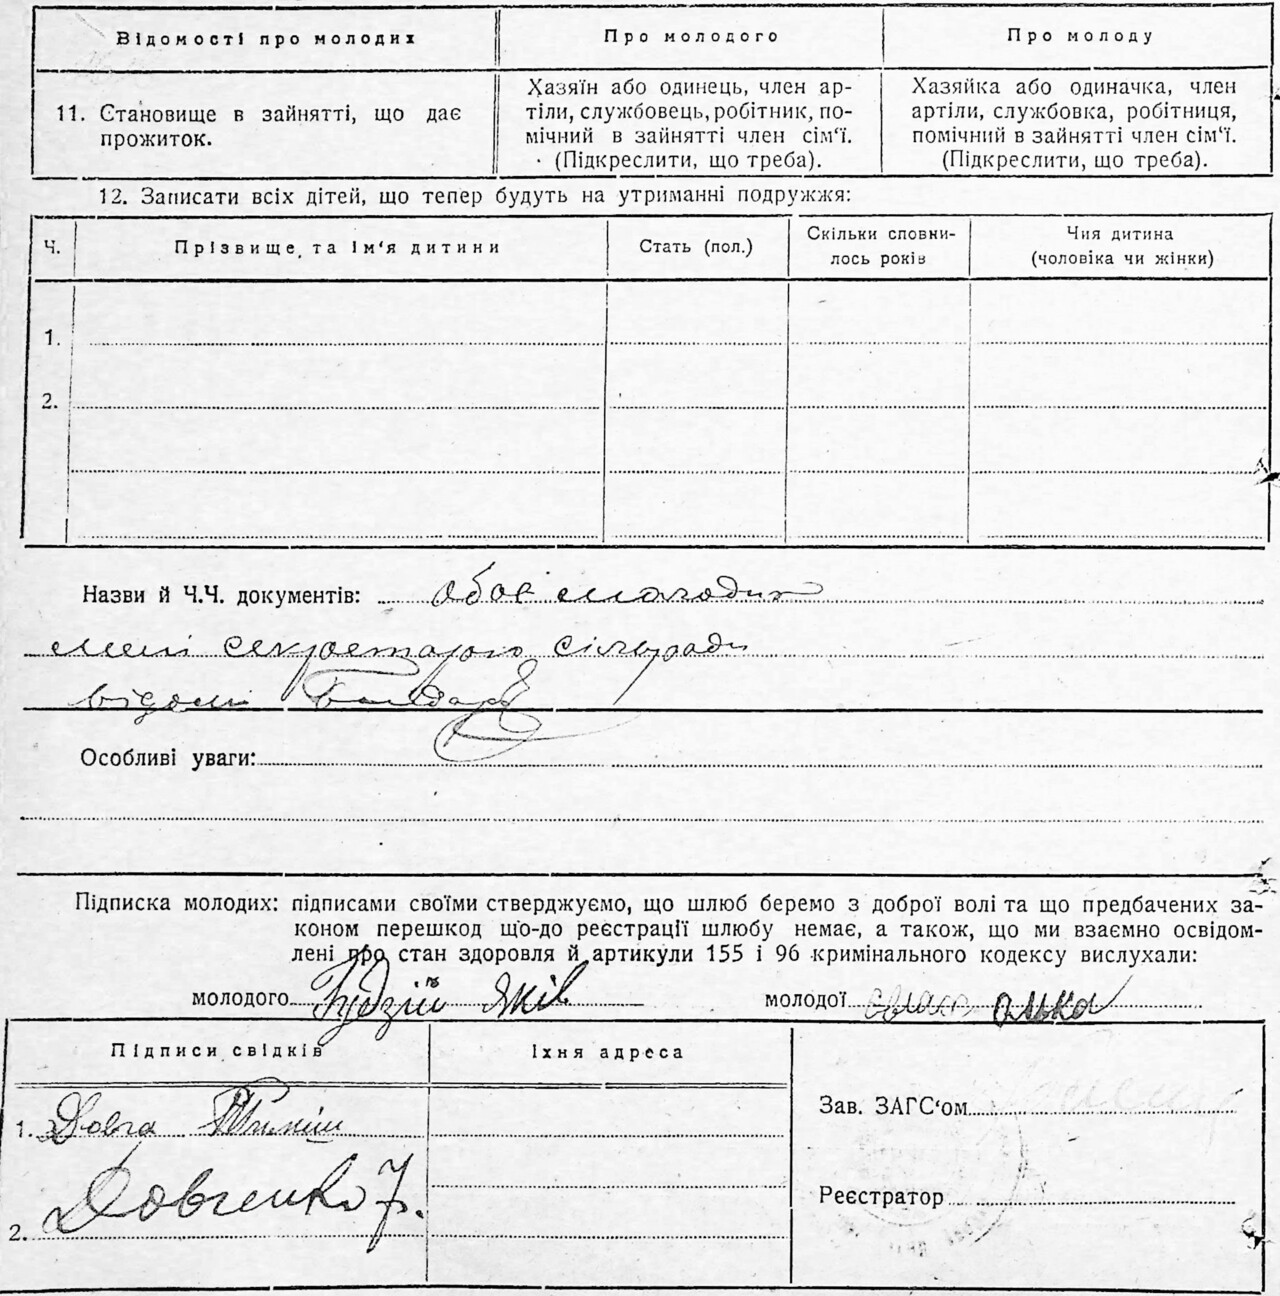 Відомості про молодих
Про молодого
Про молоду
11. Становище в зайнятті, що дає
прожиток.
Хазяїн або одинець, член ар-
тіли, службовець, робітник, по-
мічний в зайнятті член сім‘ї.
(Підкреслити, що треба).
Хазяйка або одиначка, член
артіли, службовка, робітниця,
помічний в зайнятті член сім‘ї.
(Підкреслити, що треба).
12. Записати всіх дітей, що тепер будуть на утриманні подружжя:
Ч.
Прізвище та ім‘я дитини
Стать (пол.)
Скільки сповни-
лось років
Чия дитина
(чоловіка чи жінки)
1.
2.
Назви й Ч.Ч. документів: обоє молодих
мені секретарю сільради
відомі
Особливі уваги:
Підписка молодих: підписами своїми стверджуємо, що шлюб беремо з доброї волі та що предбачених за-
коном перешкод що-до реєстрації шлюбу немає, а також, що ми взаємно освідом-
лені про стан здоровля й артикули 155 і 96 кримінального кодексу вислухали:
молодого Яків
молодої
Підписи свідків
Їхня адреса
1. Довга
2. Довченко
Зав. ЗАГС‘ом
Реєстратор